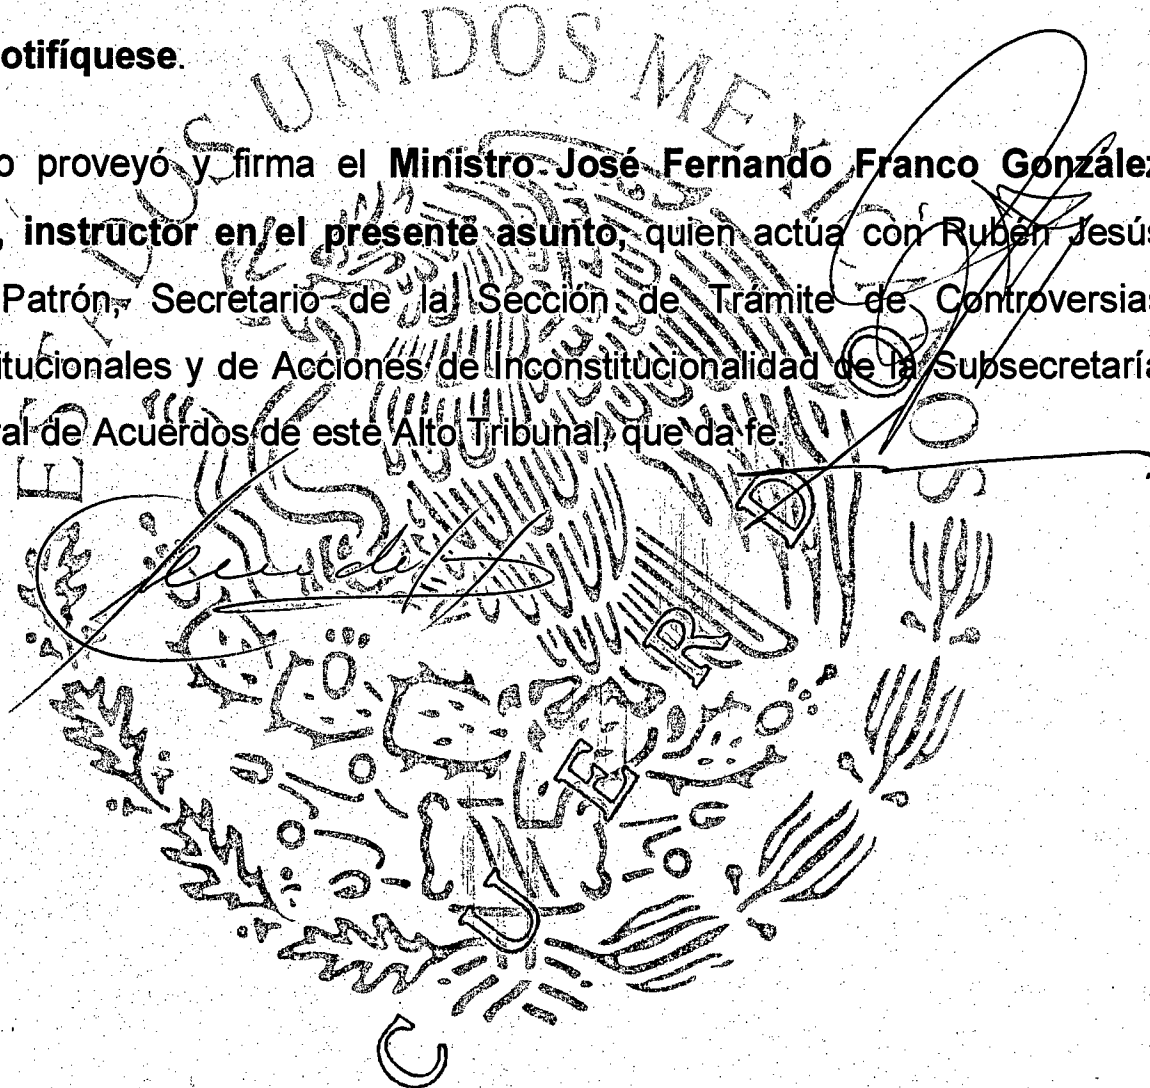 otifíquese.
o proveyó y firma el Ministro José Fernando Franco González
, instructor en el presente asunto, quien actúa con Rubén Jesús
Patrón, Secretario de la Sección de Trámite de Controversias
itucionales y de Acciones de Inconstitucionalidad de la Subsecretaría
ral de Acuerdos de este Alto Tribunal, que da fe.
ESTADOS UNIDOS MEXICANOS
CUERDO